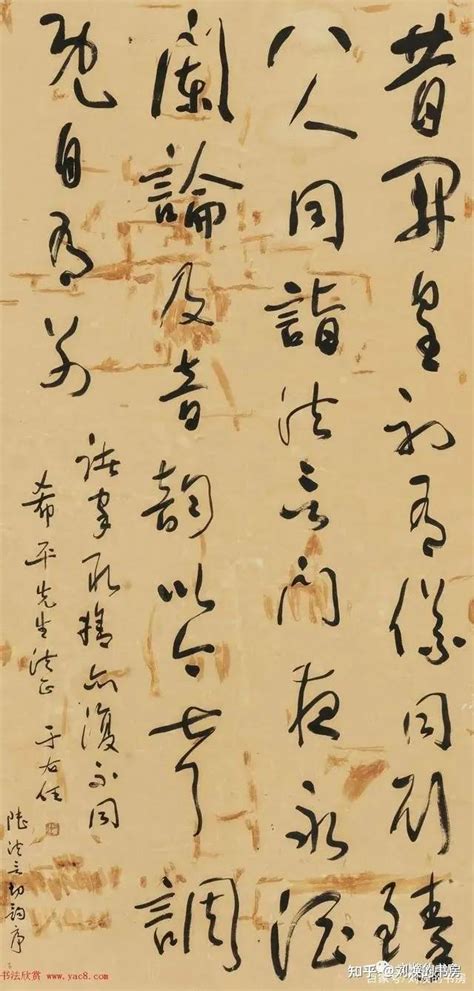 昔開皇初有儀同劉臻
八人同詣法言門夜永酒
闌論及音韻以今聲調
既自有別
諸家取捨亦復不同
希平先生法正 于右任
陸法言切韻序
书法欣赏 www.yac8.com
知乎 @刘焕的书房